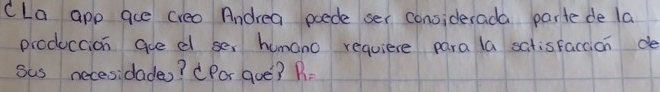 ¿La app que creo Andrea puede ser considerada parte de la
producción que el ser humano requiere para la satisfacción de
sus necesidades? ¿Por qué? R=